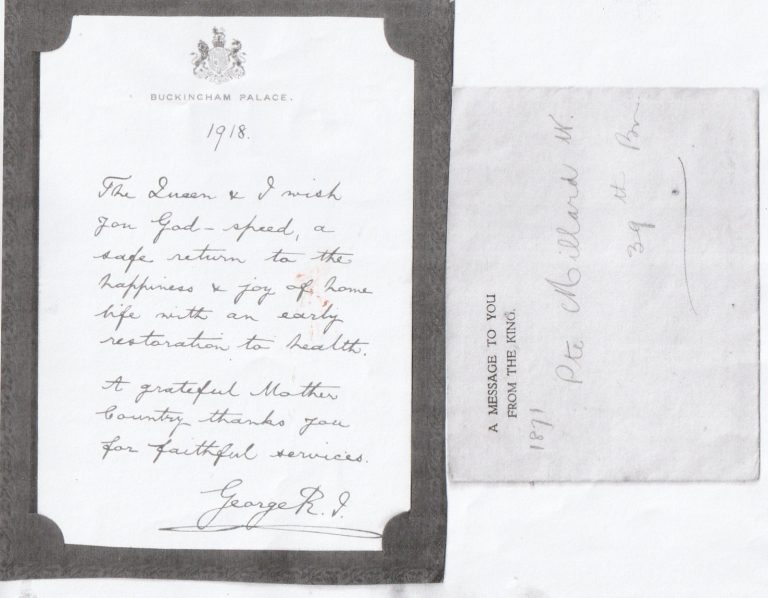 BUCKINGHAM PALACE.
1918.
The Queen & I wish
you God-speed, a
safe return to the
happiness & joy of home
life with an early
restoration to health.
A grateful Mother
Country thanks you
for faithful services.
George R.I.
A MESSAGE TO YOU
FROM THE KING.
1871
Pte Millard W.
39th Bn.